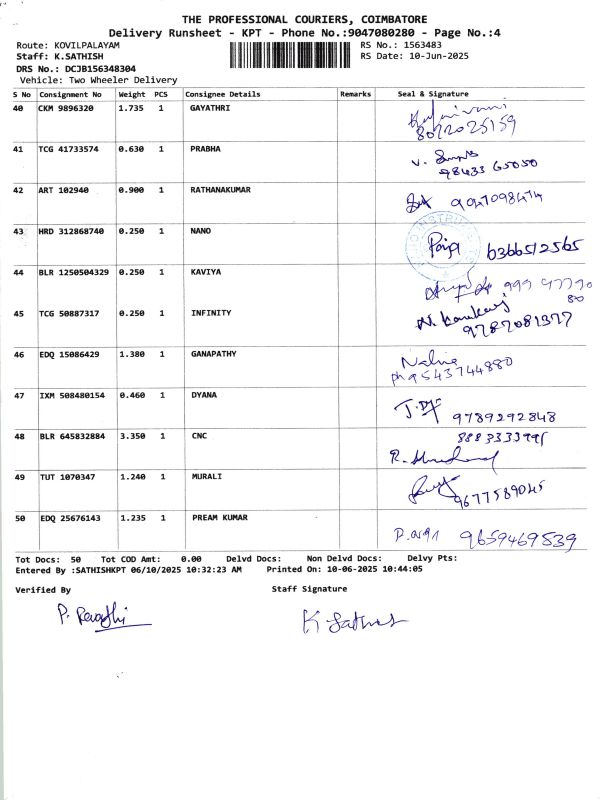 THE PROFESSIONAL COURIERS, COIMBATORE
Delivery Runsheet - KPT - Phone No.:9047080280 - Page No.:4
Route: KOVILPALAYAM
RS No.: 1563483
Staff: K.SATHISH
RS Date: 10-Jun-2025
DRS No.: DCJB156348304
Vehicle: Two Wheeler Delivery
S No Consignment No Weight PCS Consignee Details Remarks Seal & Signature
40 CKM 9896320 1.735 1 GAYATHRI
41 TCG 41733574 0.630 1 PRABHA
98433 65050
42 ART 102940 0.900 1 RATHANAKUMAR
43 HRD 312868740 0.250 1 NANO
6366512565
44 BLR 1250504329 0.250 1 KAVIYA
999 97790
80
45 TCG 50887317 0.250 1 INFINITY
9787081377
46 EDQ 15086429 1.380 1 GANAPATHY
ph 9543744880
47 IXM 508480154 0.460 1 DYANA
9789292848
48 BLR 645832884 3.350 1 CNC
49 TUT 1070347 1.240 1 MURALI
9677589045
50 EDQ 25676143 1.235 1 PREAM KUMAR
9659469539
Tot Docs: 50 Tot COD Amt: 0.00 Delvd Docs: Non Delvd Docs: Delvy Pts:
Entered By :SATHISHKPT 06/10/2025 10:32:23 AM Printed On: 10-06-2025 10:44:05
Verified By Staff Signature
P. Revathi K Sathish